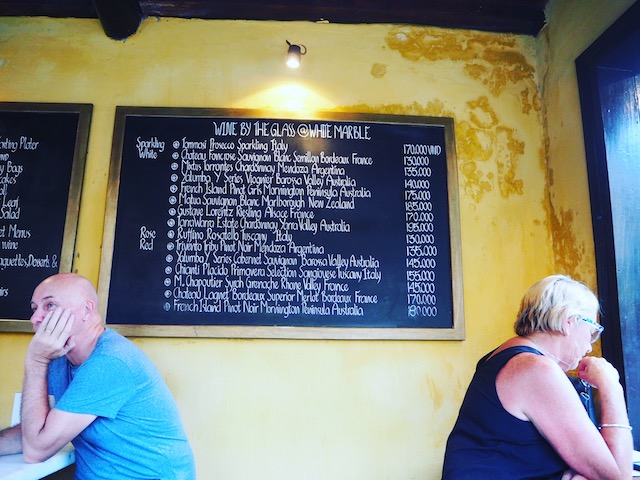 nting Plater
y Bags
akes
oll
Leaf
Salad
et Menus
wine
aguettes, Dessert &
airs
WINE BY THE GLASS @ WHITE MARBLE
Sparkling Tommasi Prosecco Sparkling Italy 170.000 VND
White Chateau Foncrose Sauvignon Blanc Semillon Bordeaux France 130.000
Mistos Torrontes Chardonnay Mendoza Argentina 135.000
Yalumba Y Series Viognier Barossa Valley Australia 140.000
French Island Pinot Gris Mornington Peninsula Australia 175.000
Matua Sauvignon Blanc Marlborough New Zealand 185.000
Gustave Lorentz Riesling Alsace France 170.000
TarraWarra Estate Chardonnay Yarra Valley Australia 195.000
Rose Ruffino Rosatello Tuscany Italy 130.000
Red Trivento Tribu Pinot Noir Mendoza Argentina 135.000
Yalumba Y Series Cabernet Sauvignon Barossa Valley Australia 145.000
Chianti Placido Primavera Selection Sangiovese Tuscany Italy 155.000
M. Chapoutier Syrah Grenache Rhone Valley France 145.000
Chateau Lagnet Bordeaux Superior Merlot Bordeaux France 170.000
French Island Pinot Noir Mornington Peninsula Australia 190.000